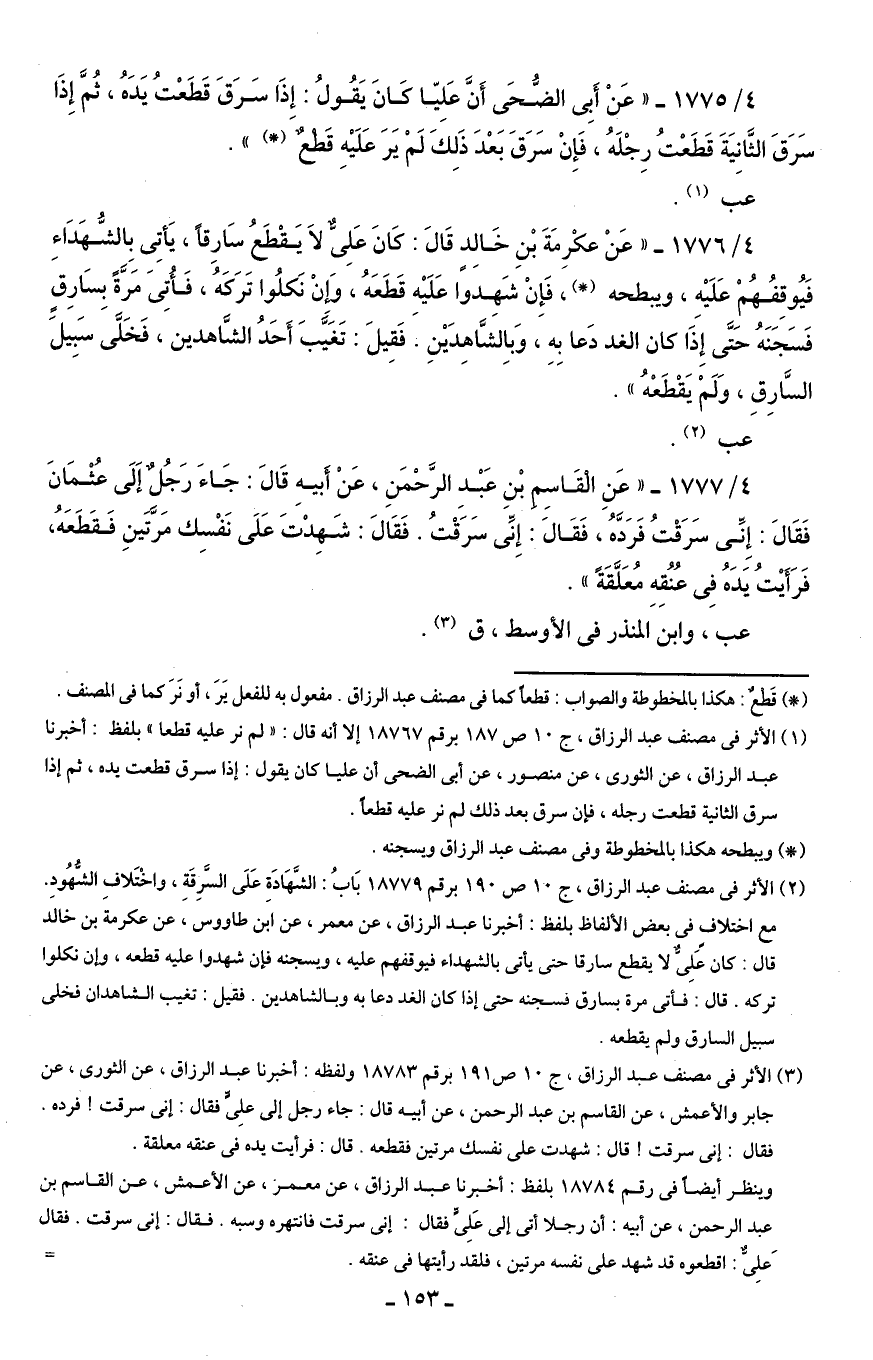 ٤/ ١٧٧٥ ـ « عَنْ أَبِى الضُّحَى أَنَّ عَلِيّا كَانَ يَقُولُ : إِذَا سَرَقَ قَطَعْتُ يَدَهُ ، ثُمَّ إِذَا
سَرَقَ الثَّانِيَةَ قَطَعْتُ رِجْلَهُ ، فَإِنْ سَرَقَ بَعْدَ ذَلِكَ لَمْ يَرَ عَلَيْهِ قَطْعٌ (*) » .
عب (١) .
٤/ ١٧٧٦ ـ « عَنْ عِكْرِمَةَ بْنِ خَالِدٍ قَالَ : كَانَ عَلِىٌّ لاَ يَقْطَعُ سَارِقاً ، يَأتِى بِالشُّهَدَاءِ
فَيُوقِفُهُمْ عَلَيْهِ ، ويبطحه (*) ، فَإِنْ شَهِدوا عَلَيْهِ قَطَعَهُ ، وَإِنْ نَكَلُوا تَرَكَهُ ، فَأُتِىَ مَرَّةً بِسَارِقٍ
فَسَجَنَهُ حَتَّى إِذَا كان الغد دَعا بِهِ ، وَبَالشَّاهِدَيْنِ . فَقِيلَ : تَغَيَّبَ أَحَدُ الشَّاهدين ، فَخَلَّى سَبِيلَ
السَّارِقِ ، وَلَمْ يَقْطَعْهُ » .
عب (٢) .
٤/ ١٧٧٧ ـ « عَنِ الْقَاسِمِ بْنِ عَبْدِ الرَّحْمَنِ ، عَنْ أَبيهِ قَالَ : جَاءَ رَجُلٌ إِلَى عثْمَانَ
فَقَالَ : إِنِّى سَرَقْتُ فَرَدَّهُ ، فَقَالَ : إِنِّى سَرَقْتُ . فَقَالَ : شَهِدْتَ عَلَى نَفْسِك مَرَّتَينِ فَقَطَعَهُ،
فَرَأَيْتُ يَدَهُ فِى عنُقِهِ مُعَلَّقَةً » .
عب ، وابن المنذر فى الأوسط ، ق (٣) .
(*) قَطْعٌ : هكذا بالمخطوطة والصواب : قطعاً كما فى مصنف عبد الرزاق . مفعول به للفعل يَرَ ، أو نَرَ كما فى المصنف .
(١) الأثر فى مصنف عبد الرزاق ، ج ١٠ ص ١٨٧ برقم ١٨٧٦٧ إلا أنه قال : « لم نر عليه قطعا » بلفظ : أخبرنا
عبد الرزاق ، عن الثورى ، عن منصور ، عن أبى الضحى أن عليا كان يقول : إذا سرق قطعت يده ، ثم إذا
سرق الثانية قطعت رجله ، فإن سرق بعد ذلك لم نر عليه قطعاً .
(*) ويبطحه هكذا بالمخطوطة وفى مصنف عبد الرزاق ويسجنه .
(٢) الأثر فى مصنف عبد الرزاق ، ج ١٠ ص ١٩٠ برقم ١٨٧٧٩ بَابُ : الشَّهَادَةِ عَلَى السَّرِقَةِ ، واخْتَلافِ الشُّهُودِ.
مع اختلافٍ فى بعض الألفاظ بلفظ : أخبرنا عبد الرزاق ، عن معمر ، عن ابن طاووس ، عن عكرمة بن خالد
قال : كان عَلِىٌّ لا يقطع سارقا حتى يأتى بالشهداء فيوقفهم عليه ، ويسجنه فإن شهدوا عليه قطعه ، وإن نكلوا
تركه . قال : فأتى مرة بسارق فسجنه حتى إذا كان الغد دعا به وبالشاهدين . فقيل : تغيب الشاهدان فخلى
سبيل السارق ولم يقطعه .
(٣) الأثر فى مصنف عبد الرزاق ، ج ١٠ ص١٩١ برقم ١٨٧٨٣ ولفظه : أخبرنا عبد الرزاق ، عن الثورى ، عن
جابر والأعمش ، عن القاسم بن عبد الرحمن ، عن أبيه قال : جاء رجل إلى عَلِىٍّ فقال : إنى سرقت ! فرده .
فقال : إنى سرقت ! قال : شهدت على نفسك مرتين فقطعه . قال : فرأيت يده فى عنقه معلقة .
وينظر أيضاً فى رقم ١٨٧٨٤ بلفظ : أخبرنا عبد الرزاق ، عن معمر ، عن الأعمش ، عن القاسم بن
عبد الرحمن ، عن أبيه : أن رجلا أتى إلى عَلِىٍّ فقال : إنى سرقت فانتهره وسبه . فقال : إنى سرقت . فقال
عَلِىٌّ : اقطعوه قد شهد على نفسه مرتين ، فلقد رأيتها فى عنقه .
=
ـ ١٥٣ ـ